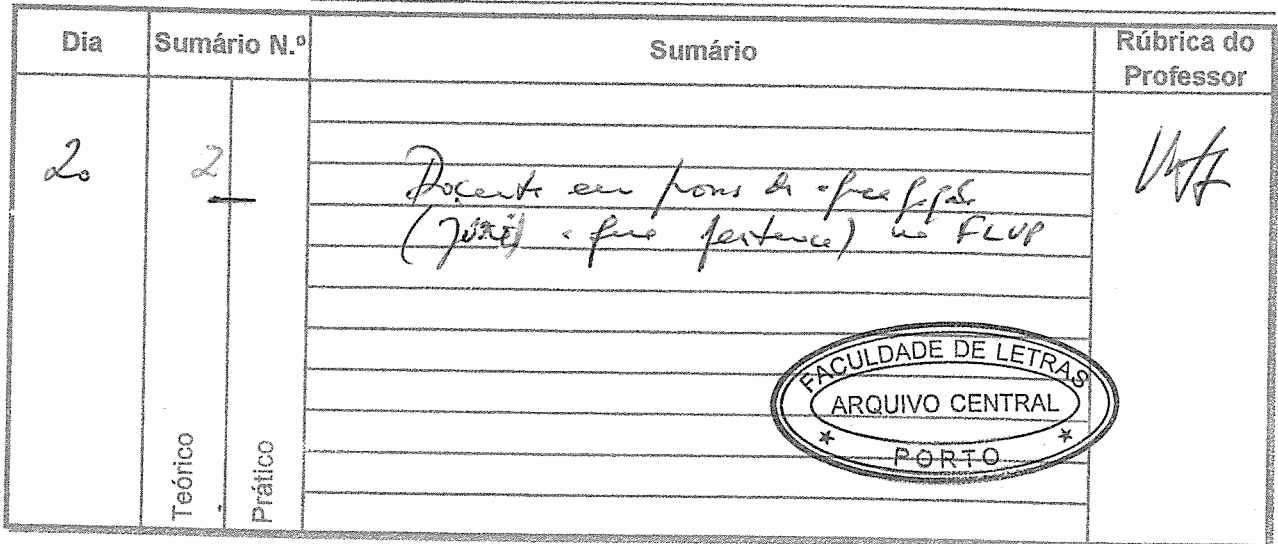 Dia Sumário N.º Sumário Rúbrica do Professor
20 2
Docente em provas de
(Júri a que pertence) na FLUP
Teórico Prático
FACULDADE DE LETRAS
ARQUIVO CENTRAL
PORTO